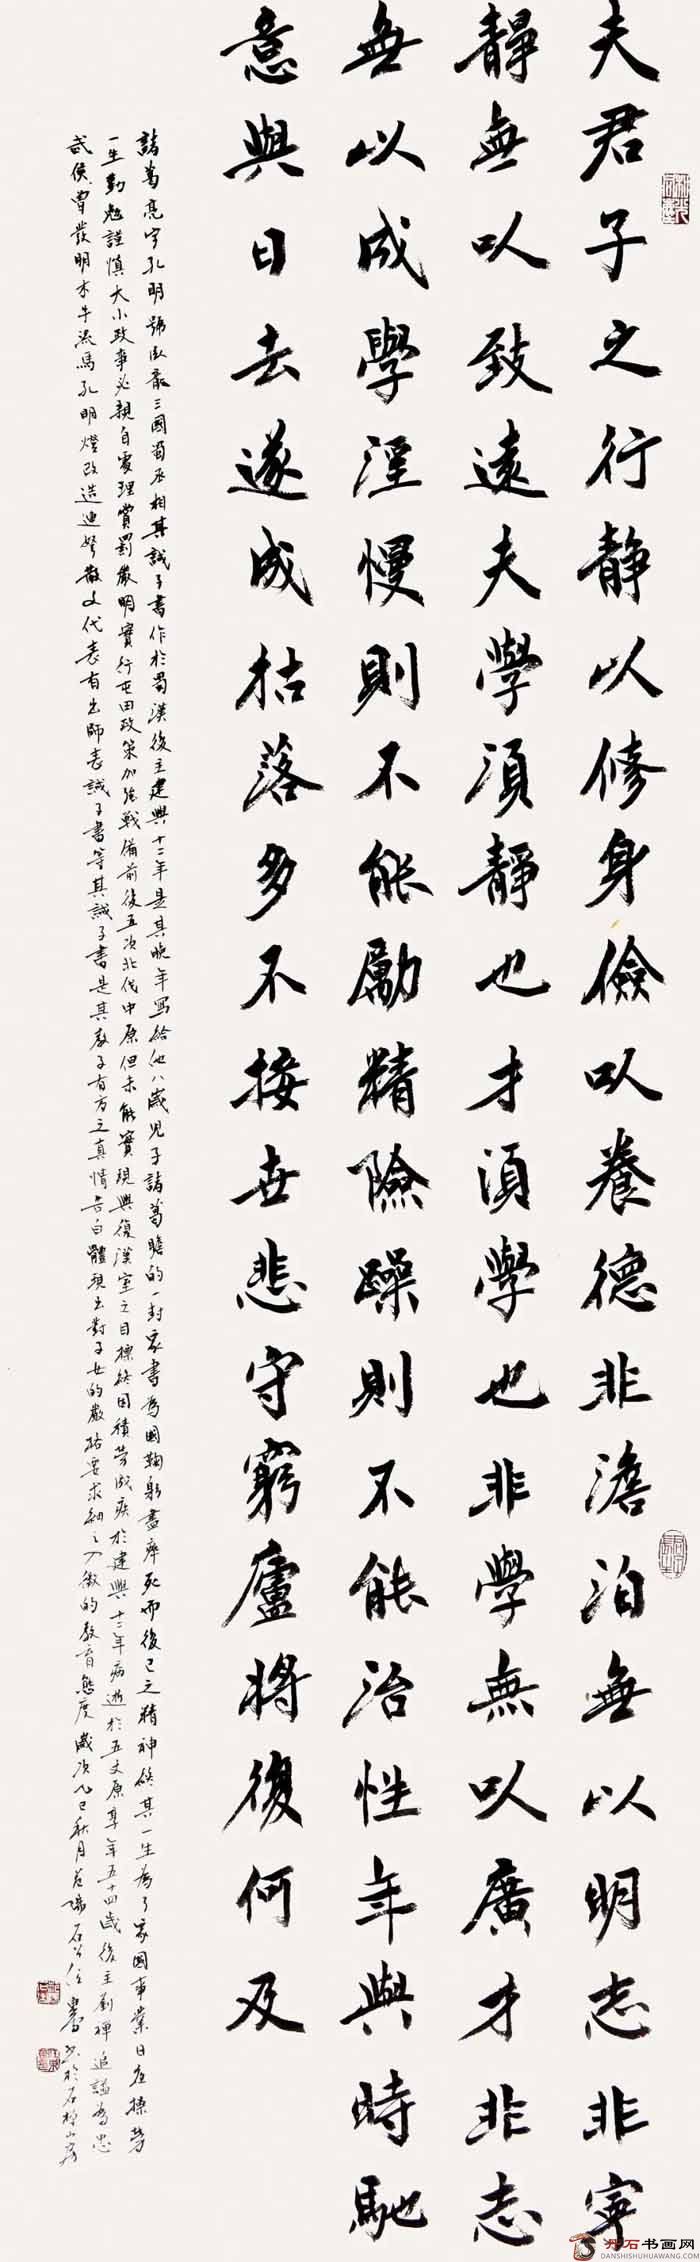 夫君子之行静以修身儉以養德非澹泊無以明志非寧
靜無以致遠夫學須靜也才須學也非學無以廣才非志
無以成學淫慢則不能勵精險躁則不能治性年與時馳
意與日去遂成枯落多不接世悲守窮廬將復何及
諸葛亮字孔明號臥龍三國蜀丞相其誡子書作於蜀漢後主建興十二年是其晚年寫給他八歲兒子諸葛瞻的一封家書為國鞠躬盡瘁死而後已之精神其一生為了家國事業日夜操勞
一生勤勉謹慎大小政事必親自處理賞罰嚴明實行屯田政策加強戰備前後五次北伐中原但未能實現興復漢室之目標終因積勞成疾於建興十二年病逝於五丈原享年五十四歲後主劉禪追謚為忠
武侯曾發明木牛流馬孔明燈改造連弩散文代表有出師表誡子書等其誡子書是其教子有方之真情告白體現出對子女的嚴格要求細之入微的教育態度歲次乙巳秋月
丹石书画网
DANSHISHUHUAWANG.COM